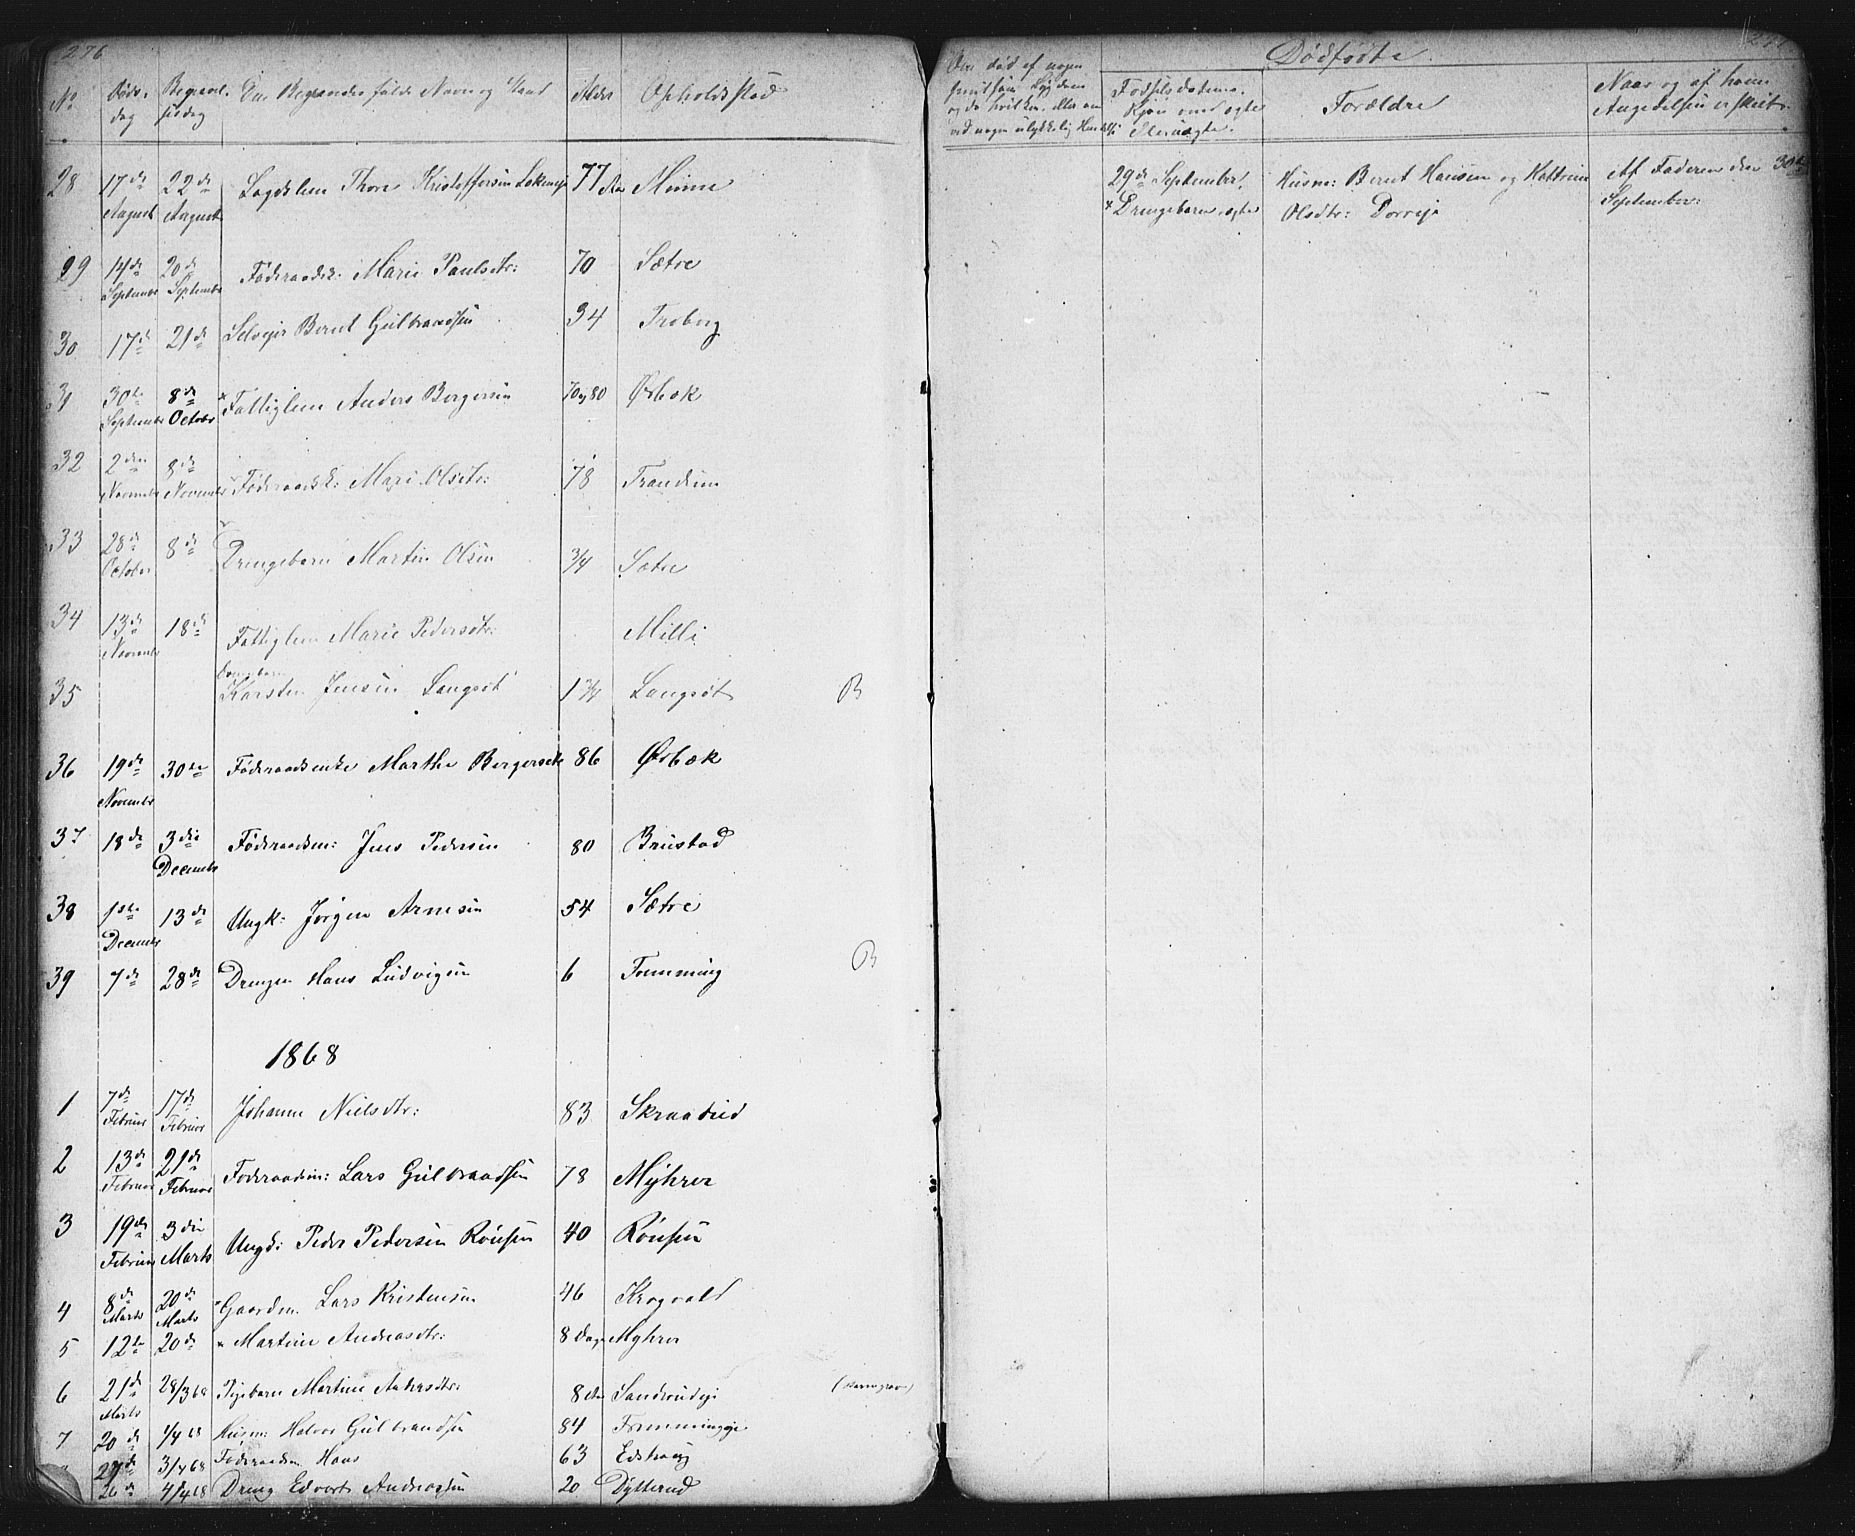 276
No Døds- Begravel- Den Begravedes fulde Navn og Stand Alder Opholdssted
dag sesdag
28 17de 22de Lægdslem Thore Kristoffersen 77 Aar Minne
August August
29 14de 20de Føderaadsk: Marie Paulsdtr: 70 Sætre
September September
30 17de 21de Selveier Bernt Gulbrandsen 34 Troborg
31 30te 8de Fattiglem Anders Bergersen 70 à 80 Ørbæk
September October
32 2den 8de Føderaadsk: Mari Olsdtr: 78 Trandum
November November
33 28de 8de Drengebarn Martin Olsen 3/4 Sætre
October
34 13de 18de Fattiglem Marie Pedersdtr: Milli
November
Drengebarn
35 Karsten Jensen Langsøt 1 3/4 Langsøt B
36 19de 30te Føderaadsenke Marthe Bergersdtr 86 Ørbæk
November
37 18de 3die Føderaadsm: Jens Pedersen 80 Brustad
December
38 1ste 13de Ungk: Jørgen Arnesen 54 Sætre
December
39 7de 28de Drengen Hans Ludvigsen 6 Fremming B
1868
1 7de 17de Johanne Nielsdtr: 83 Skraatud
Februar Februar
2 13de 21de Føderaadsm: Lars Gulbrandsen 78 Myhrer
Februar Februar
3 19de 3die Ungd: Peder Pedersen Rønsen 40 Rønsen
Februar Marts
4 8de 20de Gaardm. Lars Kristensen 46 Krogvold
Marts Marts
5 12te 20de Martine Andreasdtr: 8 Dage Myhrer
6 21de 28/3 68 Pigebarn Martine 8 Aar
Marts
7 20de 1/4 68 Husm: Halvor Gulbrandsen 84 Fremmingeie
27de 3/4 68 Føderaadsm Hans 63
26de 4/4 68 Dreng Edvart Andreassen 20 Dytterud
Dødfødte
Om død af nogen
smitsom Sygdom
og da hvilken, eller om
ved nogen ulykkelig Hendelse
Fødselsdatum.
Kjøn om ægte
eller uægte.
Forældre
Naar og af hvem
Angedelsen er skeet.
29de September, Husm: Bernt Hansen og Kattrine Af Faderen den 30te
Drengebarn, ægte Olsdtr: Dorreje September: